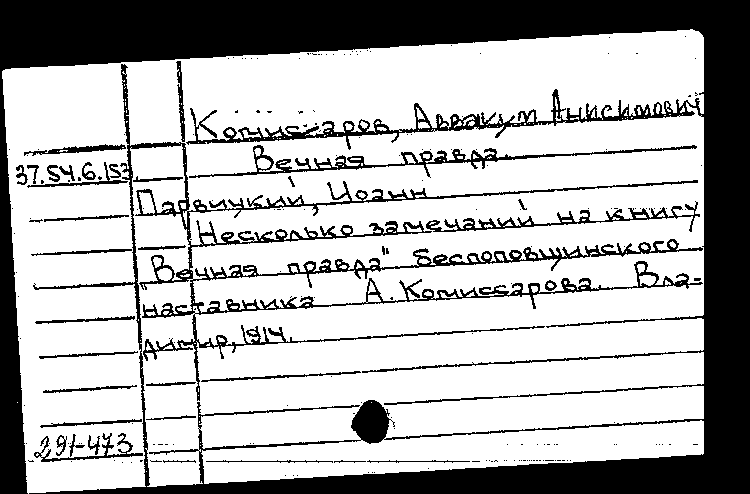 Комиссаров, Аввакум Анисимович
37.54.6.153.
Вечная правда.
Парвицкий, Иоанн
Несколько замечаний на книгу
"Вечная правда" беспоповщинского
наставника А. Комиссарова. Вла-
димир, 1914.
291-473